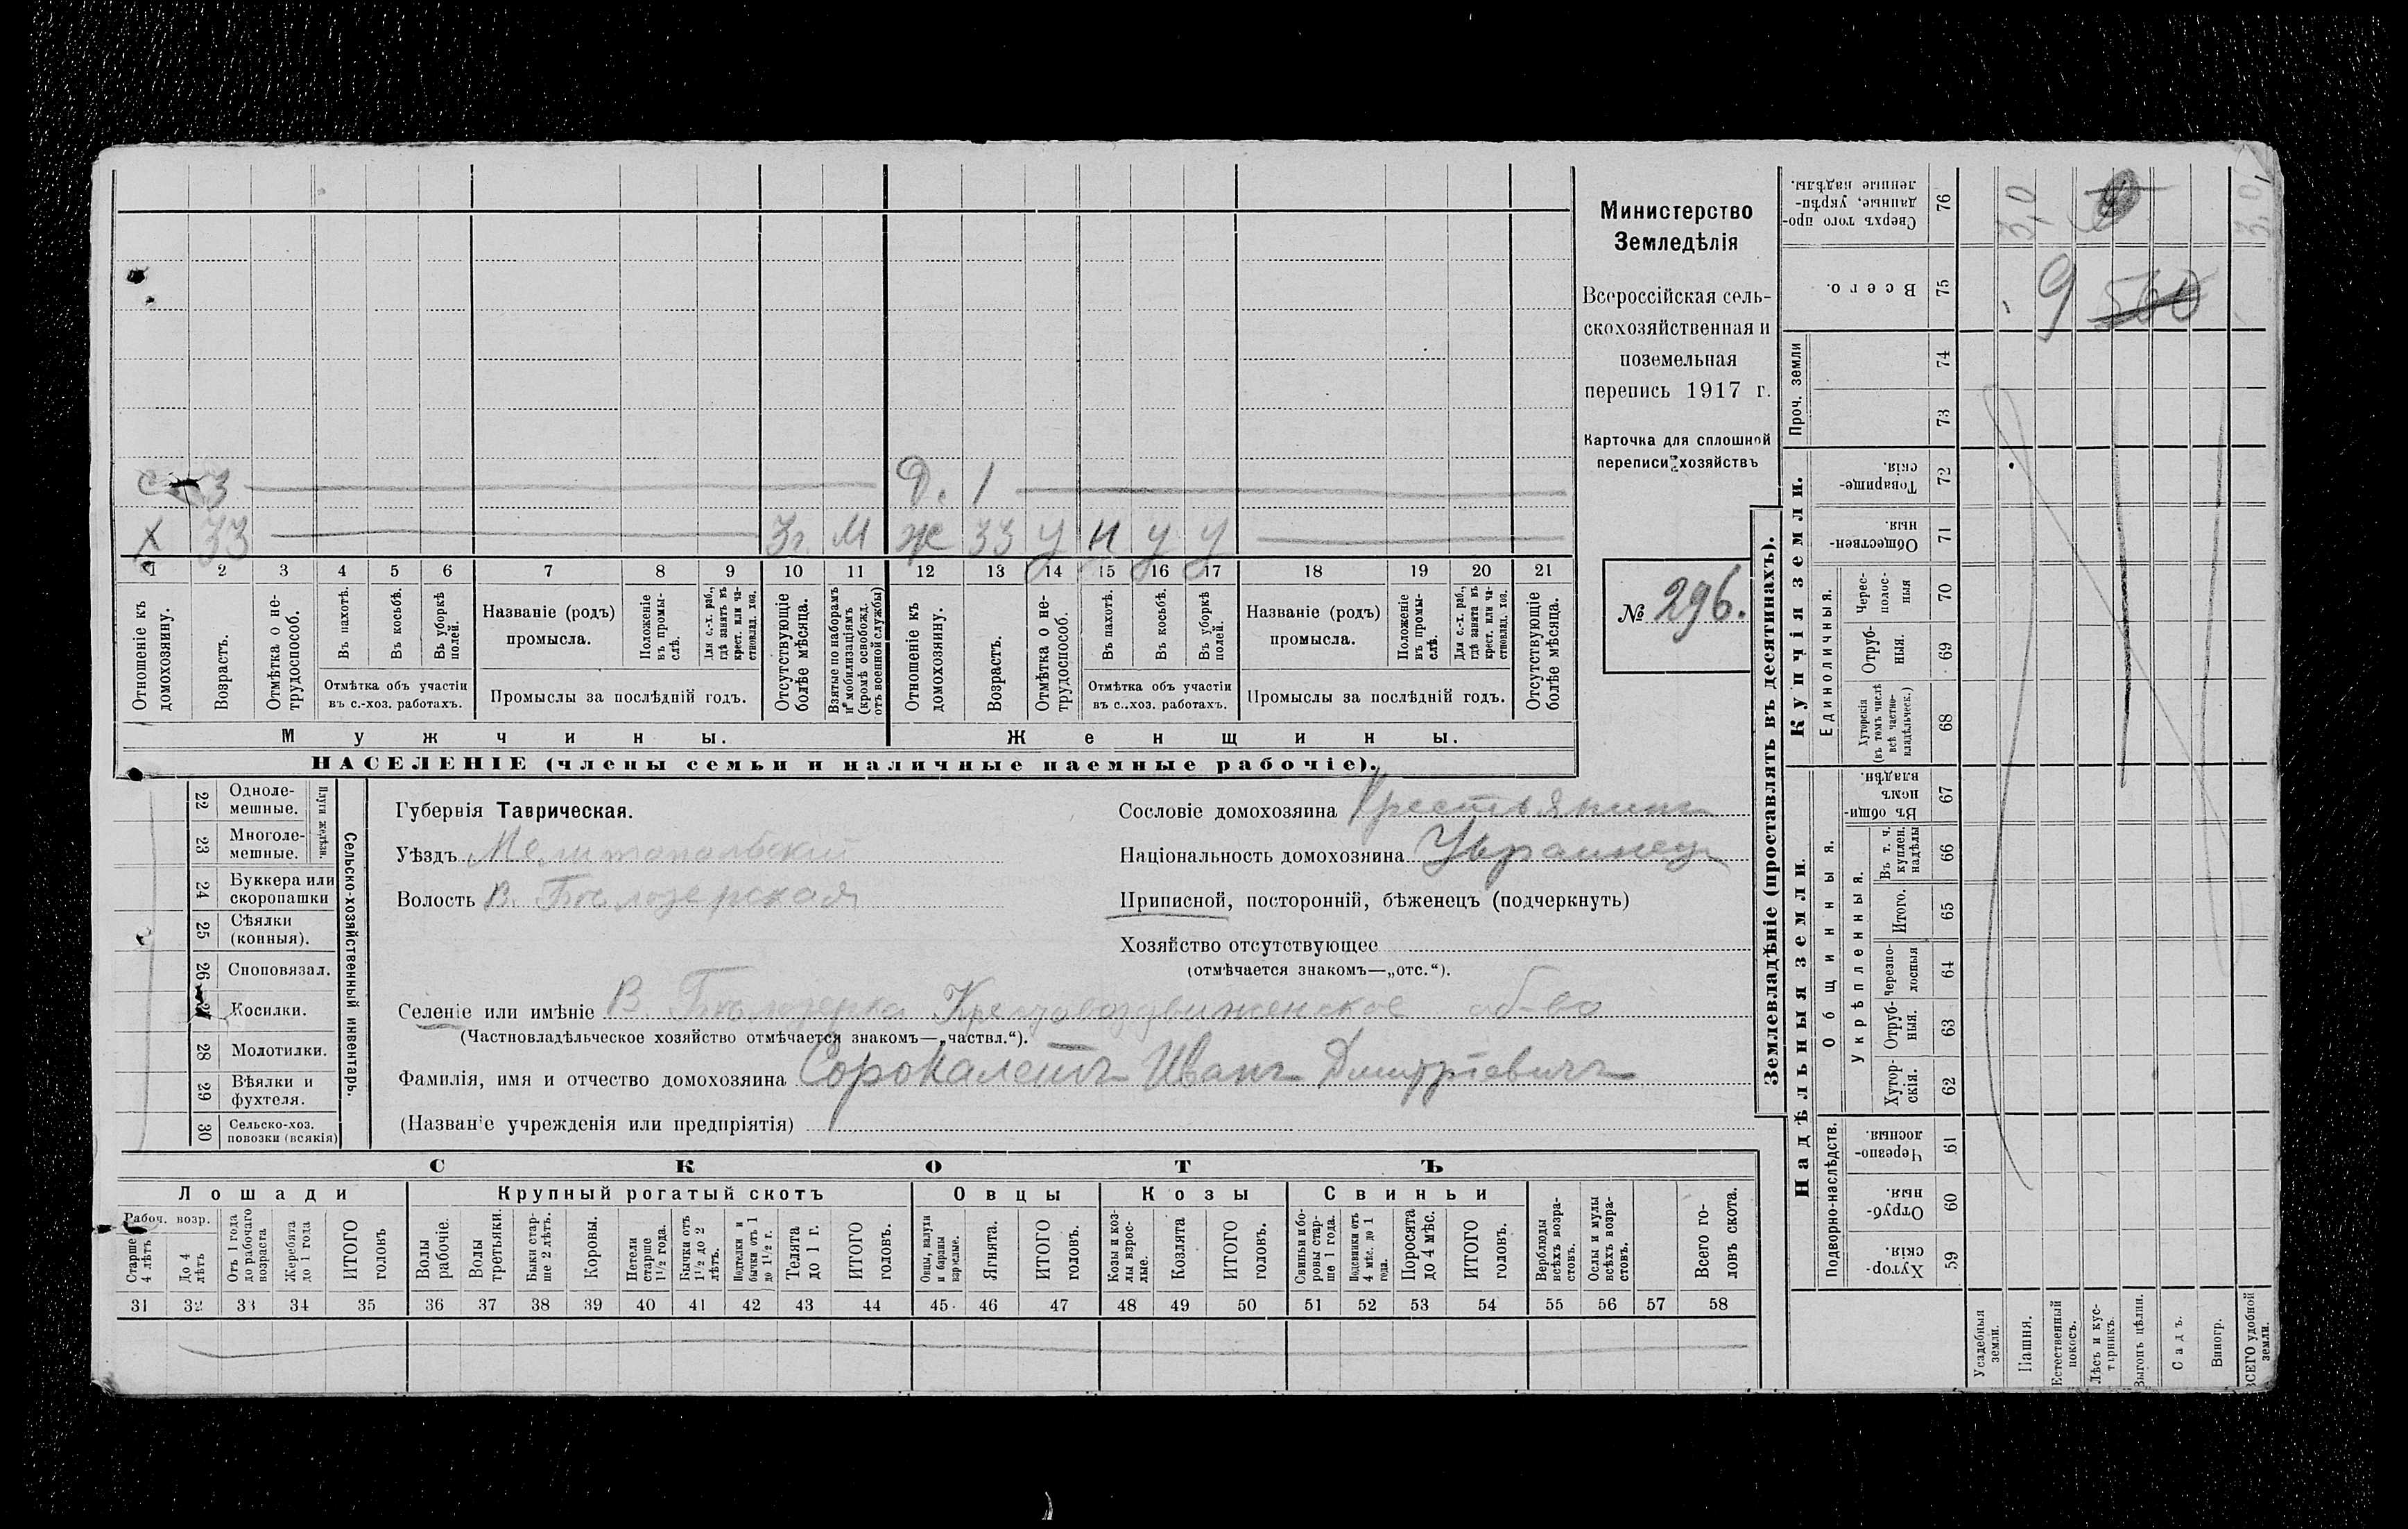 Министерство
Земледѣлія
Всероссійская сель-
скохозяйственная и
поземельная
перепись 1917 г.
Карточка для сплошной
переписи хозяйствъ
№ 296.
с 3 Д. 1
х 33 3г. м ж 33 у н у у
1 2 3 4 5 6 7 8 9 10 11 12 13 14 15 16 17 18 19 20 21
Отношеніе къ домохозяину.
Возрастъ.
Отмѣтка о не-трудоспособ.
Въ пахотѣ.
Въ косьбѣ.
Въ уборкѣ полей.
Отмѣтка объ участіи
въ с.-хоз. работахъ.
Названіе (родъ)
промысла.
Положеніе въ промы-слѣ.
Для с.-х. раб., гдѣ занятъ въ крест. или ча-стновлад. хоз.
Промыслы за послѣдній годъ.
Отсутствующіе болѣе мѣсяца.
Взятые по наборамъ и мобилизаціямъ (кромѣ освобожд. отъ военной службы)
Отношеніе къ домохозяину.
Возрастъ.
Отмѣтка о не-трудоспособ.
Въ пахотѣ.
Въ косьбѣ.
Въ уборкѣ полей.
Отмѣтка объ участіи
въ с..хоз. работахъ.
Названіе (родъ)
промысла.
Положеніе въ промы-слѣ.
Для с.-х. раб., гдѣ занята въ крест. или ча-стновлад. хоз.
Промыслы за послѣдній годъ.
Отсутствующіе болѣе мѣсяца.
Мужчины. Женщины.
НАСЕЛЕНІЕ (члены семьи и наличные наемные рабочіе).
Сельско-хозяйственный инвентарь.
Плуги желѣзн.
22 Одноле-мешные.
23 Многоле-мешные.
24 Буккера или скоропашки
25 Сѣялки (конныя).
26 Сноповязал.
27 Косилки.
28 Молотилки.
29 Вѣялки и фухтеля.
30 Сельско-хоз. повозки (всякія)
Губернія Таврическая.
Уѣздъ Мелитопольскій
Волость В. Бѣлозерская
Селеніе или имѣніе В. Бѣлозерка Крестовоздвиженское об-во
(Частновладѣльческое хозяйство отмѣчается знакомъ—„частвл.“).
Фамилія, имя и отчество домохозяина Сорокалетъ Иванъ Дмитріевичъ
(Названіе учрежденія или предпріятія)
Сословіе домохозяина Крестьянинъ
Національность домохозяина Украинец
Приписной, посторонній, бѣженецъ (подчеркнуть)
Хозяйство отсутствующее
(отмѣчается знакомъ—„отс.“).
СКОТЪ
Лошади Крупный рогатый скотъ Овцы Козы Свиньи
Рабоч. возр.
Старше 4 лѣтъ
До 4 лѣтъ
Отъ 1 года до рабочаго возраста
Жеребята до 1 года
ИТОГО головъ
Волы рабочіе.
Волы третьяки.
Быки стар-ше 2 лѣтъ.
Коровы.
Нетели старше 1 1/2 года.
Бычки отъ 1 1/2 до 2 лѣтъ.
Подтелки и бычки отъ 1 до 1 1/2 г.
Телята до 1 г.
ИТОГО головъ.
Овцы, валухи и бараны взрослые.
Ягнята.
ИТОГО головъ.
Козы и коз-лы взрос-лые.
Козлята
ИТОГО головъ.
Свиньи и бо-ровы стар-ше 1 года.
Подсвинки отъ 4 мѣс. до 1 года.
Поросята до 4 мѣс.
ИТОГО головъ.
Верблюды всѣхъ возра-стовъ.
Ослы и мулы всѣхъ возра-стовъ.
Всего го-ловъ скота.
31 32 33 34 35 36 37 38 39 40 41 42 43 44 45 46 47 48 49 50 51 52 53 54 55 56 57 58
Землевладѣніе (проставлять въ десятинахъ).
Надѣльныя земли
Купчія земли.
Проч. земли
Подворно-наслѣдств.
Общинныя.
Укрѣпленныя.
Единоличныя.
Сверхъ того про-данные, укрѣп-ленные надѣлы. 76
Всего. 75
74
73
Товарище-скія. 72
Обществен-ныя. 71
Черес-полос-ныя 70
Отруб-ныя. 69
Хуторскія (въ томъ числѣ всѣ частно-владѣльческ.) 68
Въ общи-номъ владѣн. 67
Въ т. ч. куплен. надѣлы 66
Итого. 65
Черезпо-лосныя 64
Отруб-ныя. 63
Хутор-скія. 62
Черезпо-лосныя. 61
Отруб-ныя. 60
Хутор-скія. 59
Усадебныя земли.
Пашня.
Естественный покосъ.
Лѣсъ и кус-тарникъ.
Выгонъ цѣлин.
Садъ.
Виногр.
ВСЕГО удобной земли.
3,0 3,0
9 560